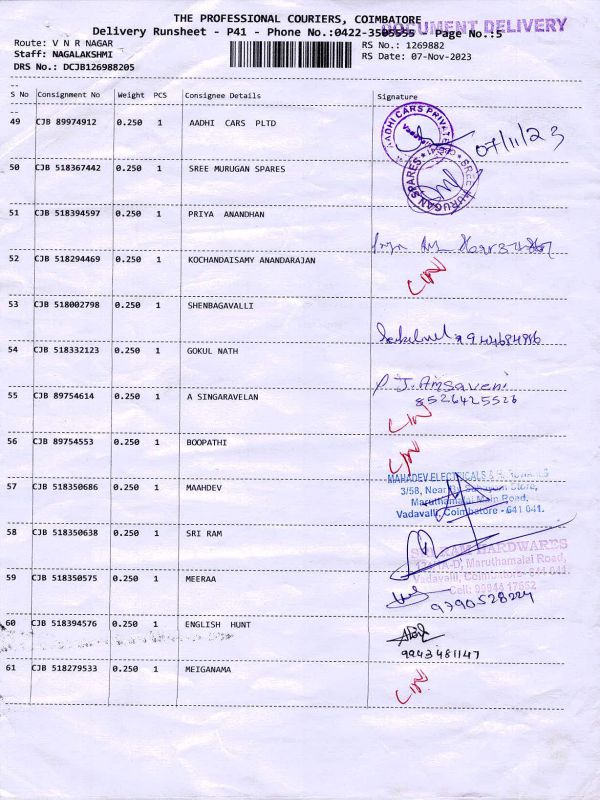 THE PROFESSIONAL COURIERS, COIMBATORE
DOCUMENT DELIVERY
Delivery Runsheet - P41 - Phone No.:0422-3505555 - Page No.:5
Route: V N R NAGAR
RS No.: 1269882
Staff: NAGALAKSHMI
RS Date: 07-Nov-2023
DRS No.: DCJB126988205
S No Consignment No Weight PCS Consignee Details Signature
49 CJB 89974912 0.250 1 AADHI CARS PLTD
07/11/23
50 CJB 518367442 0.250 1 SREE MURUGAN SPARES
51 CJB 518394597 0.250 1 PRIYA ANANDHAN
52 CJB 518294469 0.250 1 KOCHANDAISAMY ANANDARAJAN
53 CJB 518002798 0.250 1 SHENBAGAVALLI
54 CJB 518332123 0.250 1 GOKUL NATH
P.J. Amsaveni
8526425526
55 CJB 89754614 0.250 1 A SINGARAVELAN
56 CJB 89754553 0.250 1 BOOPATHI
MAHADEV ELECTRICALS &
57 CJB 518350686 0.250 1 MAAHDEV
3/58, Near Store,
Maruthamalai Main Road,
Vadavalli, Coimbatore - 641 041.
58 CJB 518350638 0.250 1 SRI RAM
SRI RAM HARDWARES
Maruthamalai Road,
Vadavalli, Coimbatore - 641 041.
Cell: 99944 17652
59 CJB 518350575 0.250 1 MEERAA
9790528224
60 CJB 518394576 0.250 1 ENGLISH HUNT
9843481147
61 CJB 518279533 0.250 1 MEIGANAMA